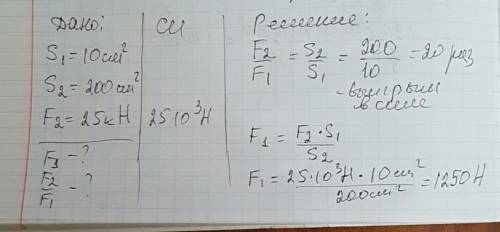 Дано:
S₁ = 10 см²
S₂ = 200 см²
F₂ = 25 кН
F₁ - ?
F₂/F₁ - ?
СИ
25·10³Н
Решение:
F₂/F₁ = S₂/S₁ = 200/10 = 20 раз
- выигрыш
в силе
F₁ = F₂·S₁/S₂
F₁ = 25·10³Н·10см²/200см² = 1250 Н